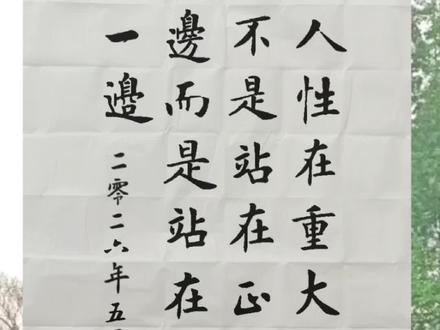 人性在重大
不是站在正
邊而是站在
一邊
二零二六年五